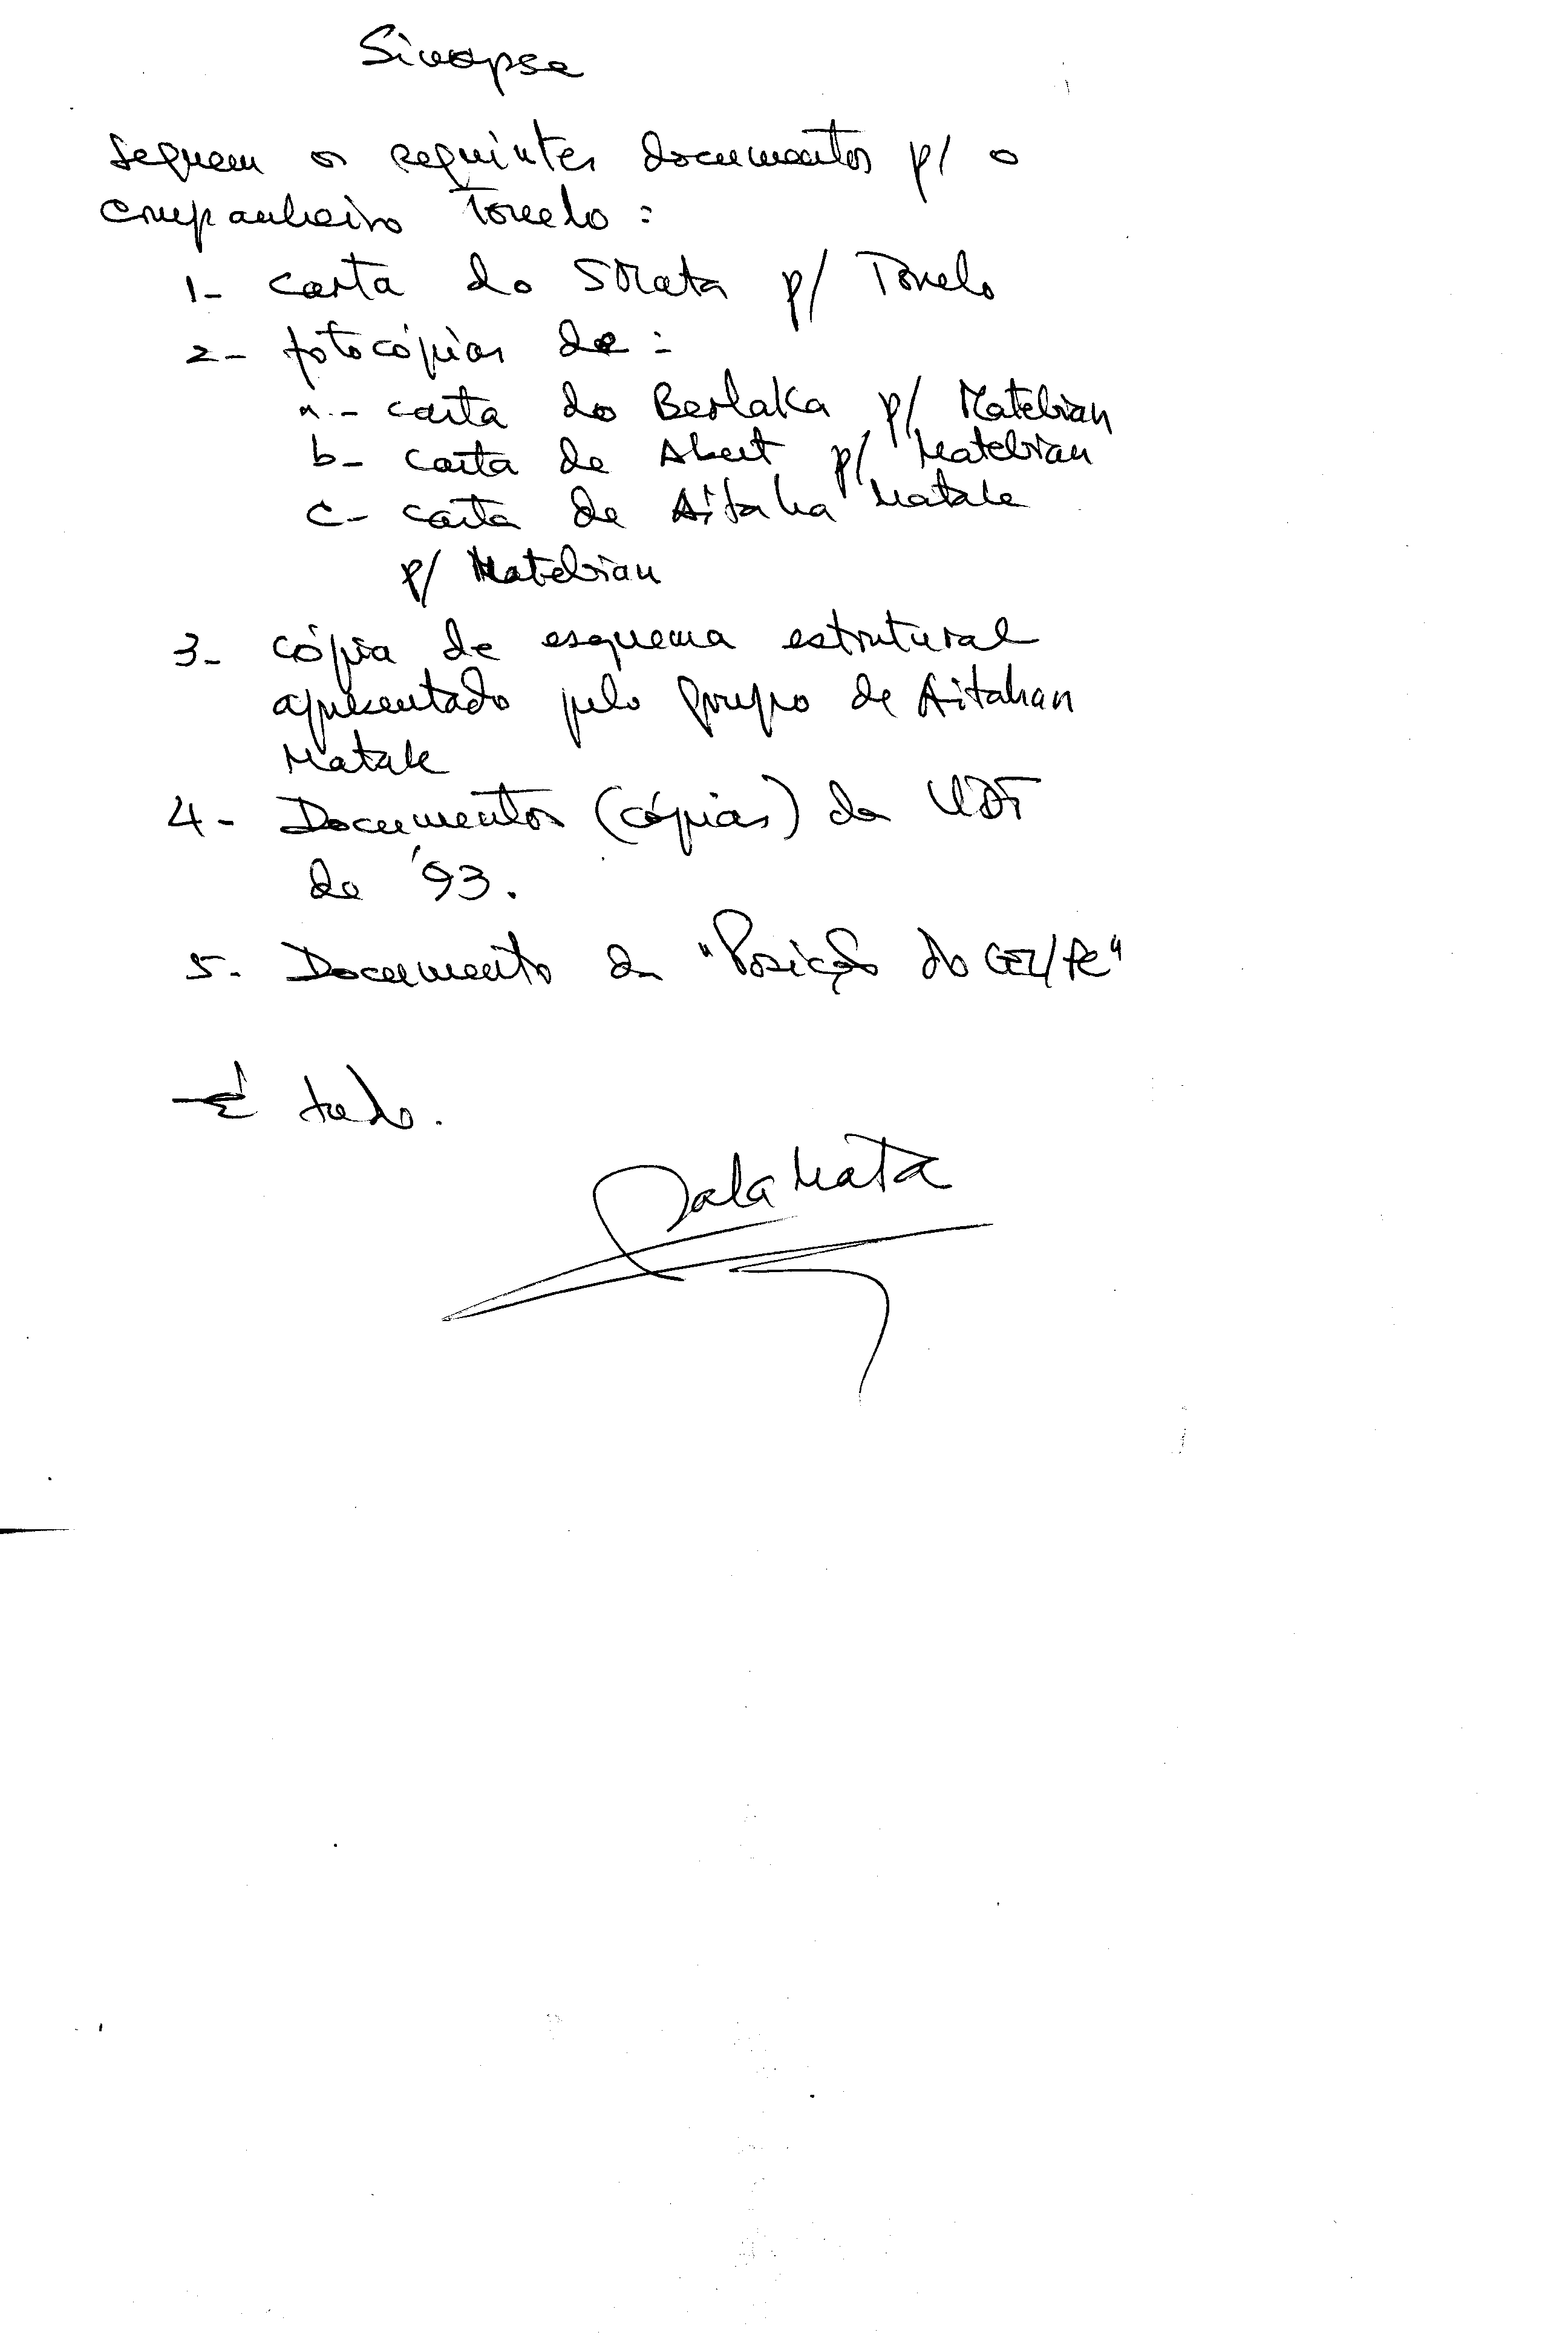 Sinopse
Seguem os seguintes documentos p/ o
companheiro Tonelo :
1- carta do SMata p/ Tonelo
2- fotocópias de :
a.- carta do Berlaka p/ Matebian
b- carta de p/ Matebian
c- carta de Aitaha Matak
p/ Matebian
3- cópia de esquema estrutural
apresentado pelo grupo de Aitahan
Matak
4- Documentos (cópias) da UDT
de '93.
5- Documento da "Posição do
- É tudo.
SalaMata